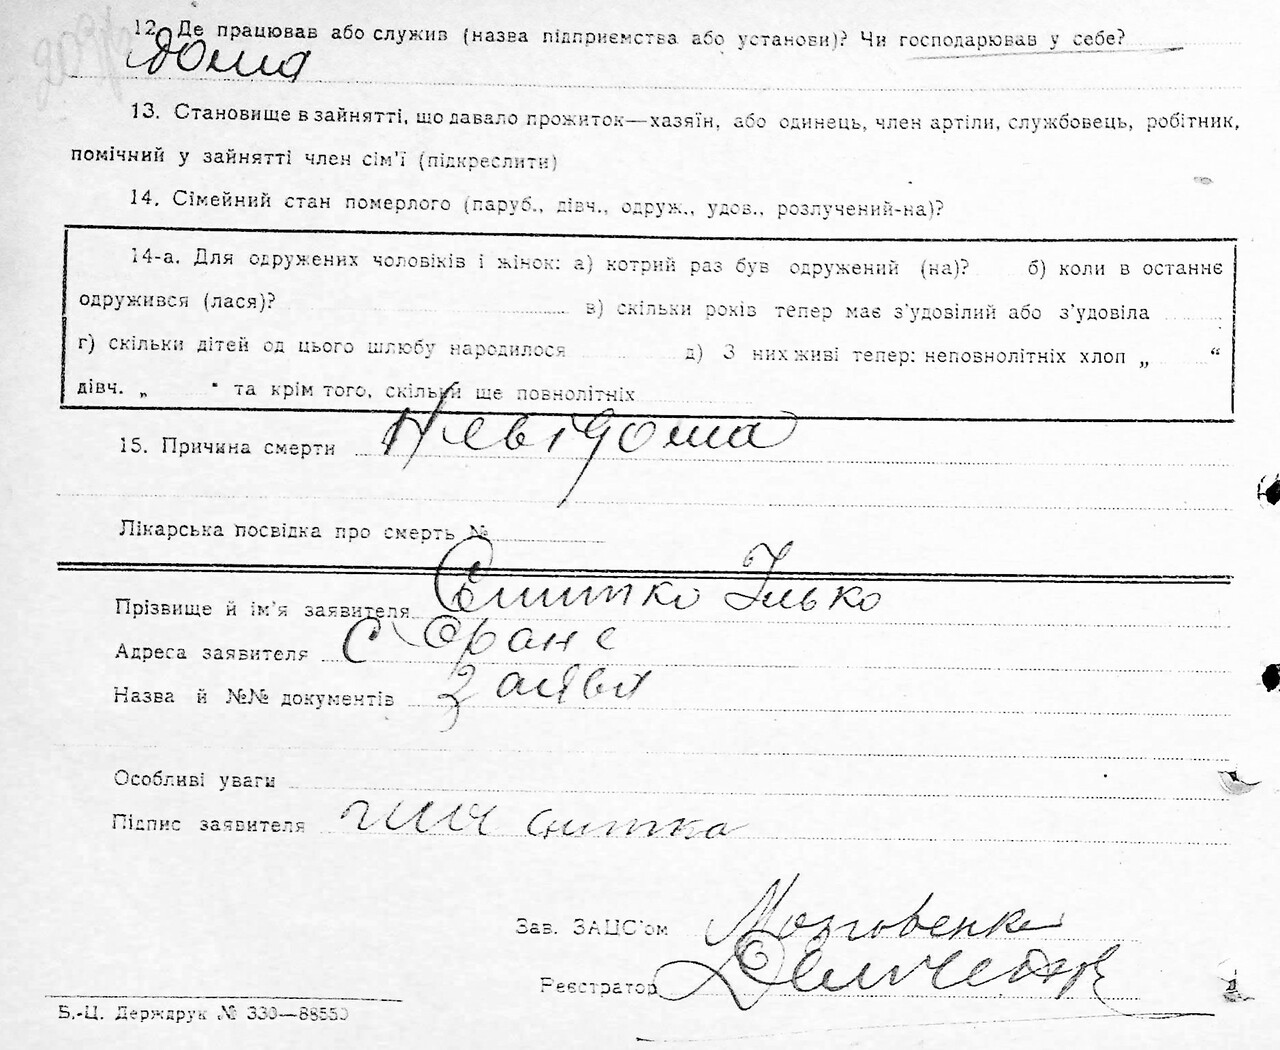 12. Де працював або служив (назва підприємства або установи)? Чи господарював у себе?
дома
13. Становище в зайнятті, що давало прожиток—хазяїн, або одинець, член артіли, службовець, робітник,
помічний у зайнятті член сім'ї (підкреслити)
14. Сімейний стан померлого (паруб., дівч., одруж., удов., розлучений-на)?
14-а. Для одружених чоловіків і жінок: а) котрий раз був одружений (на)? б) коли в останнє
одружився (лася)? в) скільки років тепер має з'удовілий або з'удовіла
г) скільки дітей од цього шлюбу народилося д) З них живі тепер: неповнолітніх хлоп „ “
дівч. „ " та крім того, скільки ще повнолітніх
15. Причина смерти Невідома
Лікарська посвідка про смерть №
Прізвище й ім'я заявителя Снитко Ілько
Адреса заявителя С
Назва й №№ документів заява
Особливі уваги
Підпис заявителя Снитка
Зав. ЗАЦС'ом
Реєстратор
Б.-Ц. Держдрук № 330—88550